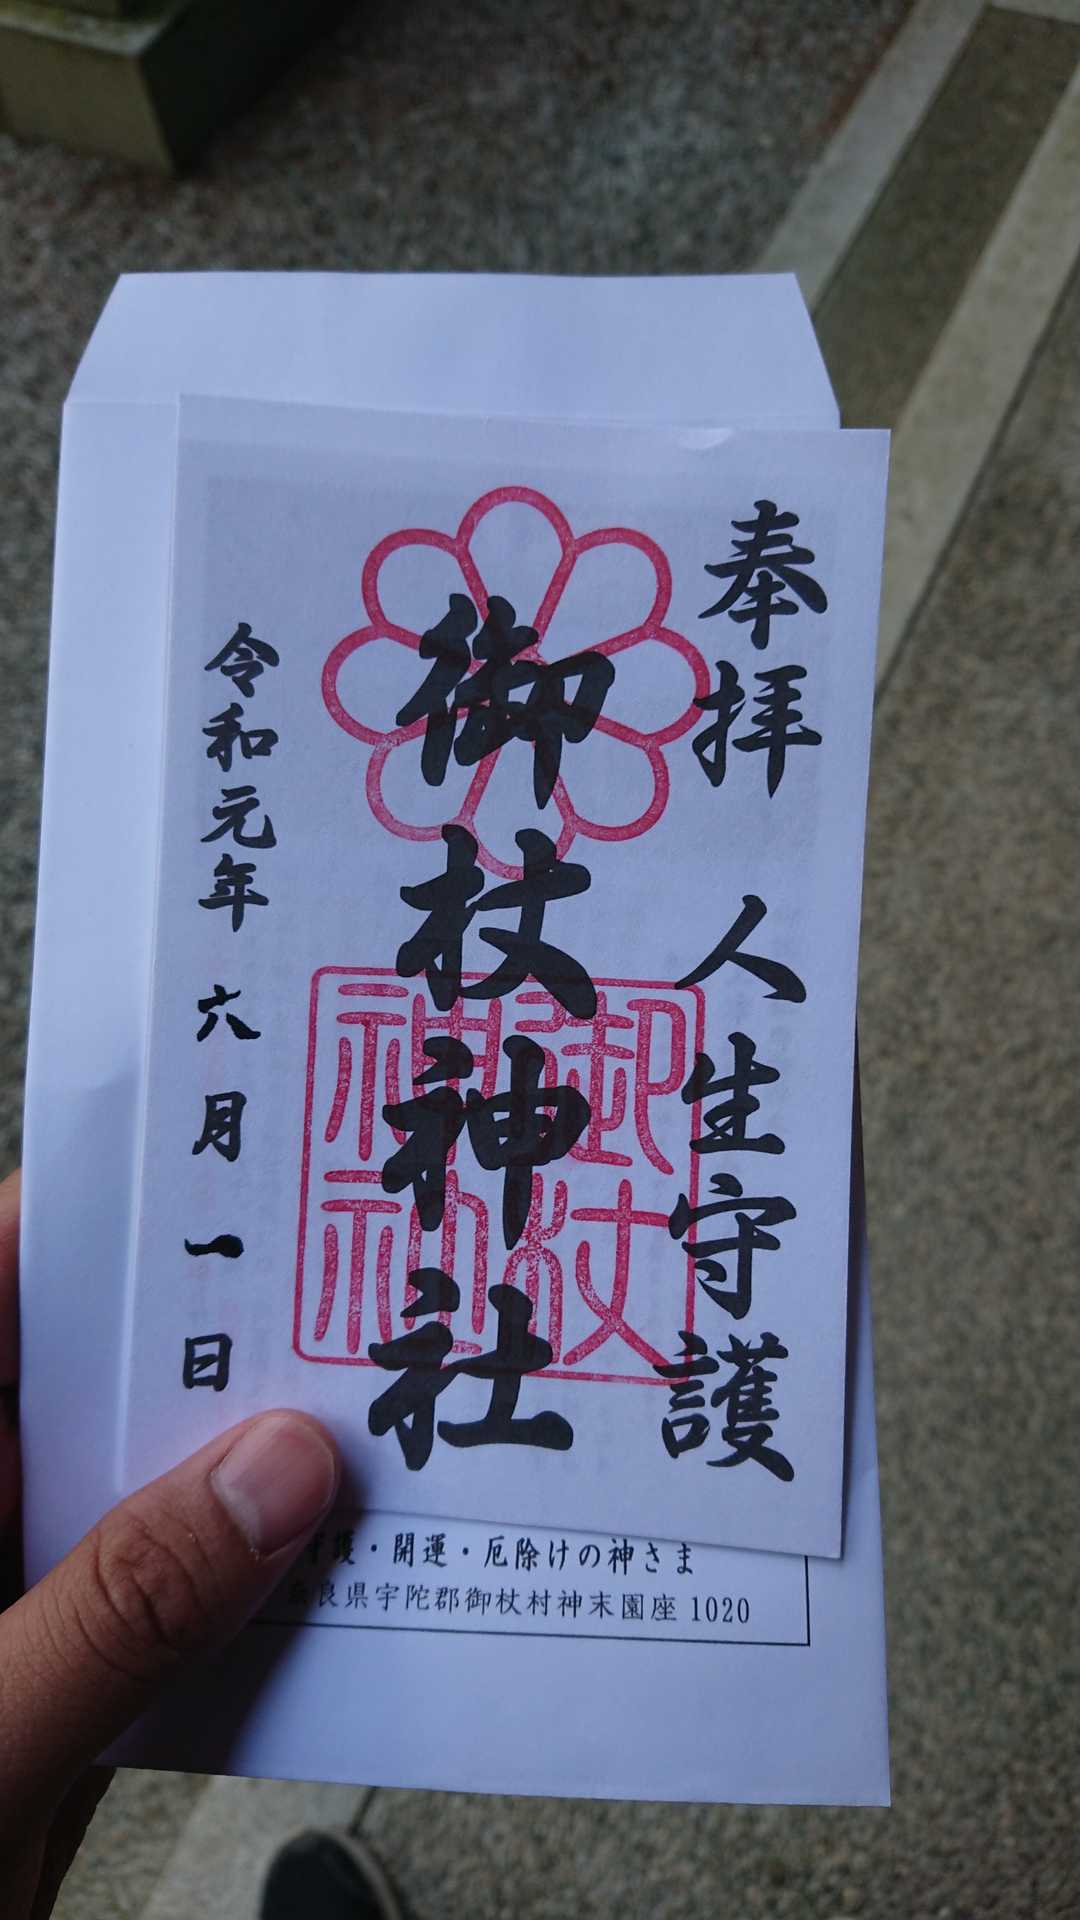 奉拝 人生守護
御杖神社
令和元年 六月 一日
御杖
神社
守護・開運・厄除けの神さま
奈良県宇陀郡御杖村神末園座1020